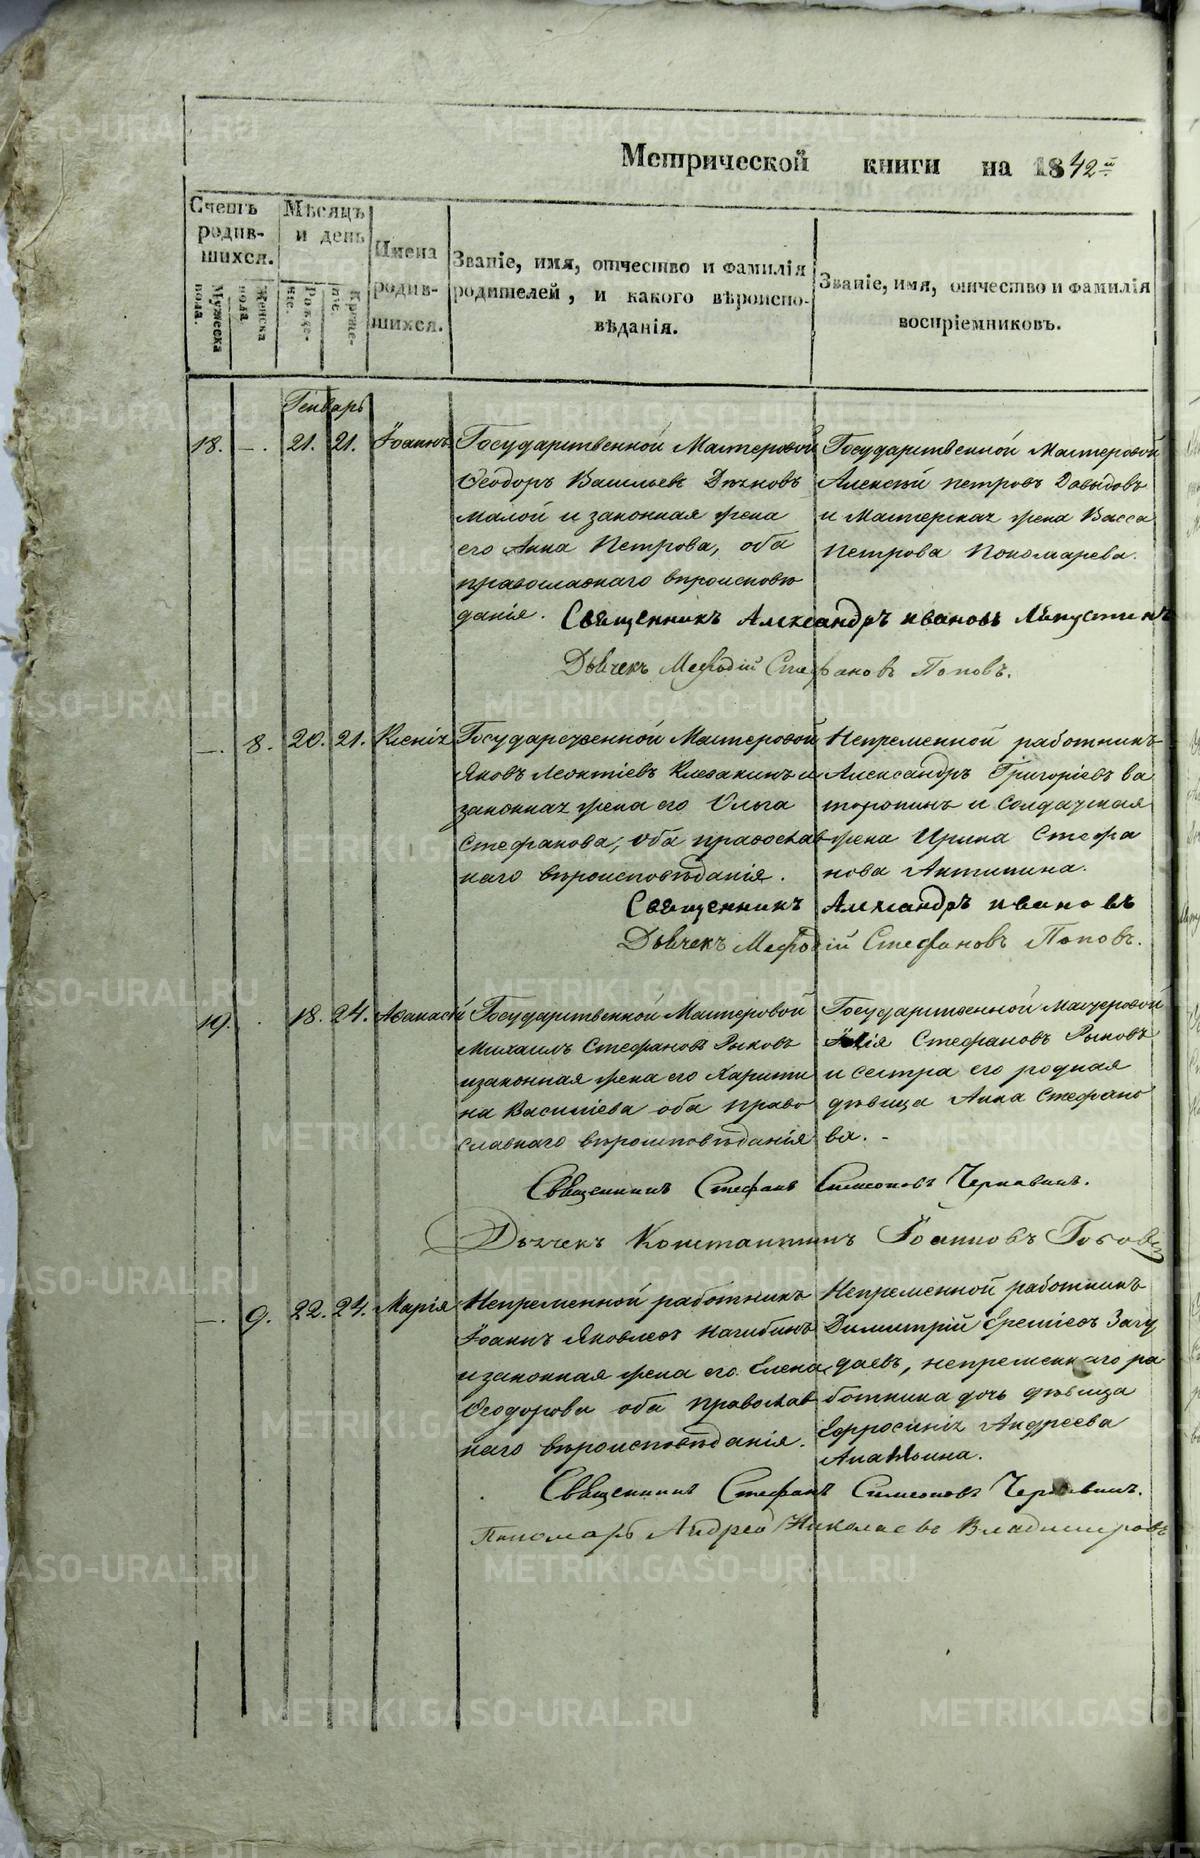 Метрической книги на 1842й
Счетъ родившихся.
Мужеска пола.
Женска пола.
Мѣсяцъ и день
Рождение.
Крещение
Имена родившихся.
Званіе, имя, отчество и фамилія родителей, и какого вѣроисповѣданія.
Званіе, имя, отчество и фамилія воспріемниковъ.
Генварь
18. – . 21. 21. Іоаннъ
Государственной Мастеровой
Ѳеодоръ Васильевъ
малой и законная жена
его Анна Петрова, оба
православнаго вѣроисповѣ
данія.
Государственной Мастеровой
Алексѣй петровъ Давыдовъ
и Мастерская жена Васса
петрова Пономарева.
Священникъ Александръ ивановъ
Дьячекъ Меѳодій Стефановъ Поповъ.
–. 8. 20. 21. Ксенія
Государственной Мастеровой
Яковъ Леонтіевъ и
законная жена его Ольга
Стефанова, оба православ
наго вѣроисповѣданія.
Непременной работникъ
Александръ Григоріевъ Ва
торопинъ и солдатская
жена Ирина Стефа
нова Антипина.
Священникъ Александръ ивановъ
Дьячекъ Меѳодій Стефановъ Поповъ.
19. . 18. 24. Аѳанасій
Государственной Мастеровой
Михаилъ Стефановъ Рыковъ
и законная жена его Харити
на Василіева оба право
славнаго вѣроисповѣданія
Государственной Мастеровой
Илія Стефановъ Рыковъ
и сестра его родная
дѣвица Анна Стефано
ва. -
Священникъ Стефанъ Симеоновъ Чернавинъ.
Дьячекъ Константинъ Іоанновъ
–. 9. 22. 24. Марія
Непременной работникъ
Іоаннъ Яковлевъ Нагибинъ
и законная жена его Елена
Ѳеодорова оба православ
наго вѣроисповѣданія.
Непременной работникъ
Димитрій Еремѣевъ Загу
даевъ, непременнаго ра
ботника дочь дѣвица
Ефросинія Андреева
Ананьина.
Священникъ Стефанъ Симеоновъ Чернавинъ.
Пономарь Андрей Николаевъ Владимировъ
METRIKI.GASO-URAL.RU